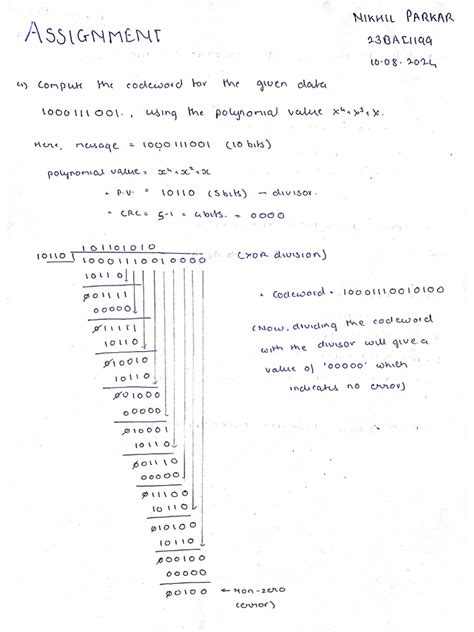 NIKHIL PARKAR
ASSIGNMENT
23BAI1199
10.08.2024
Compute the codeword for the given data
1000111001., using the polynomial value x⁴+x²+x.
Here, message = 1000111001 (10 bits)
polynomial value = x⁴+x²+x
P.V. = 10110 (5 bits) — divisor.
CRC = 5-1 = 4 bits. = 0000
101101010
10110 ) 10001110010000 (XOR division)
10110
001111
00000
011111
10110
010010
10110
001000
00000
010001
10110
001110
00000
011100
10110
010100
10110
000100
00000
00100 ← Non-zero
(error)
Codeword = 10001110010100
(Now, dividing the codeword
with the divisor will give a
value of '00000' which
indicates no error)